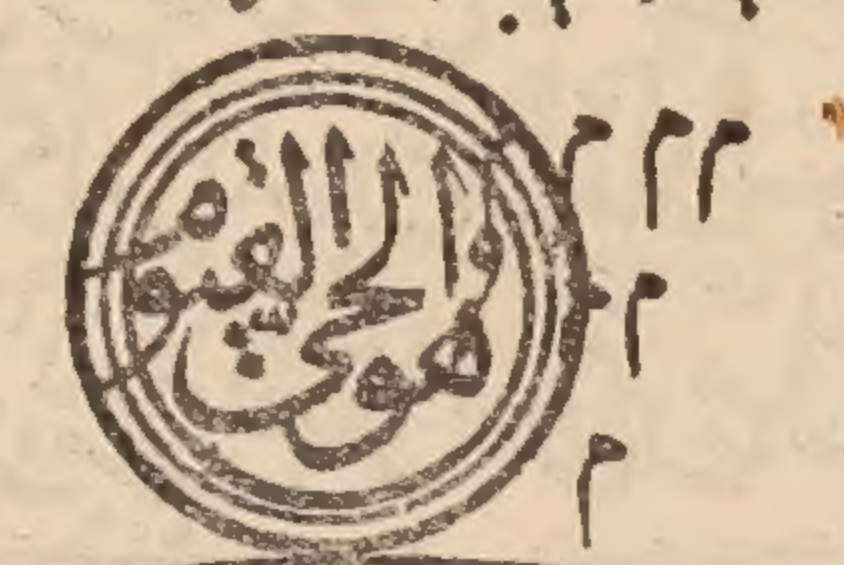 هو الحي القيوم
م م م
م
م